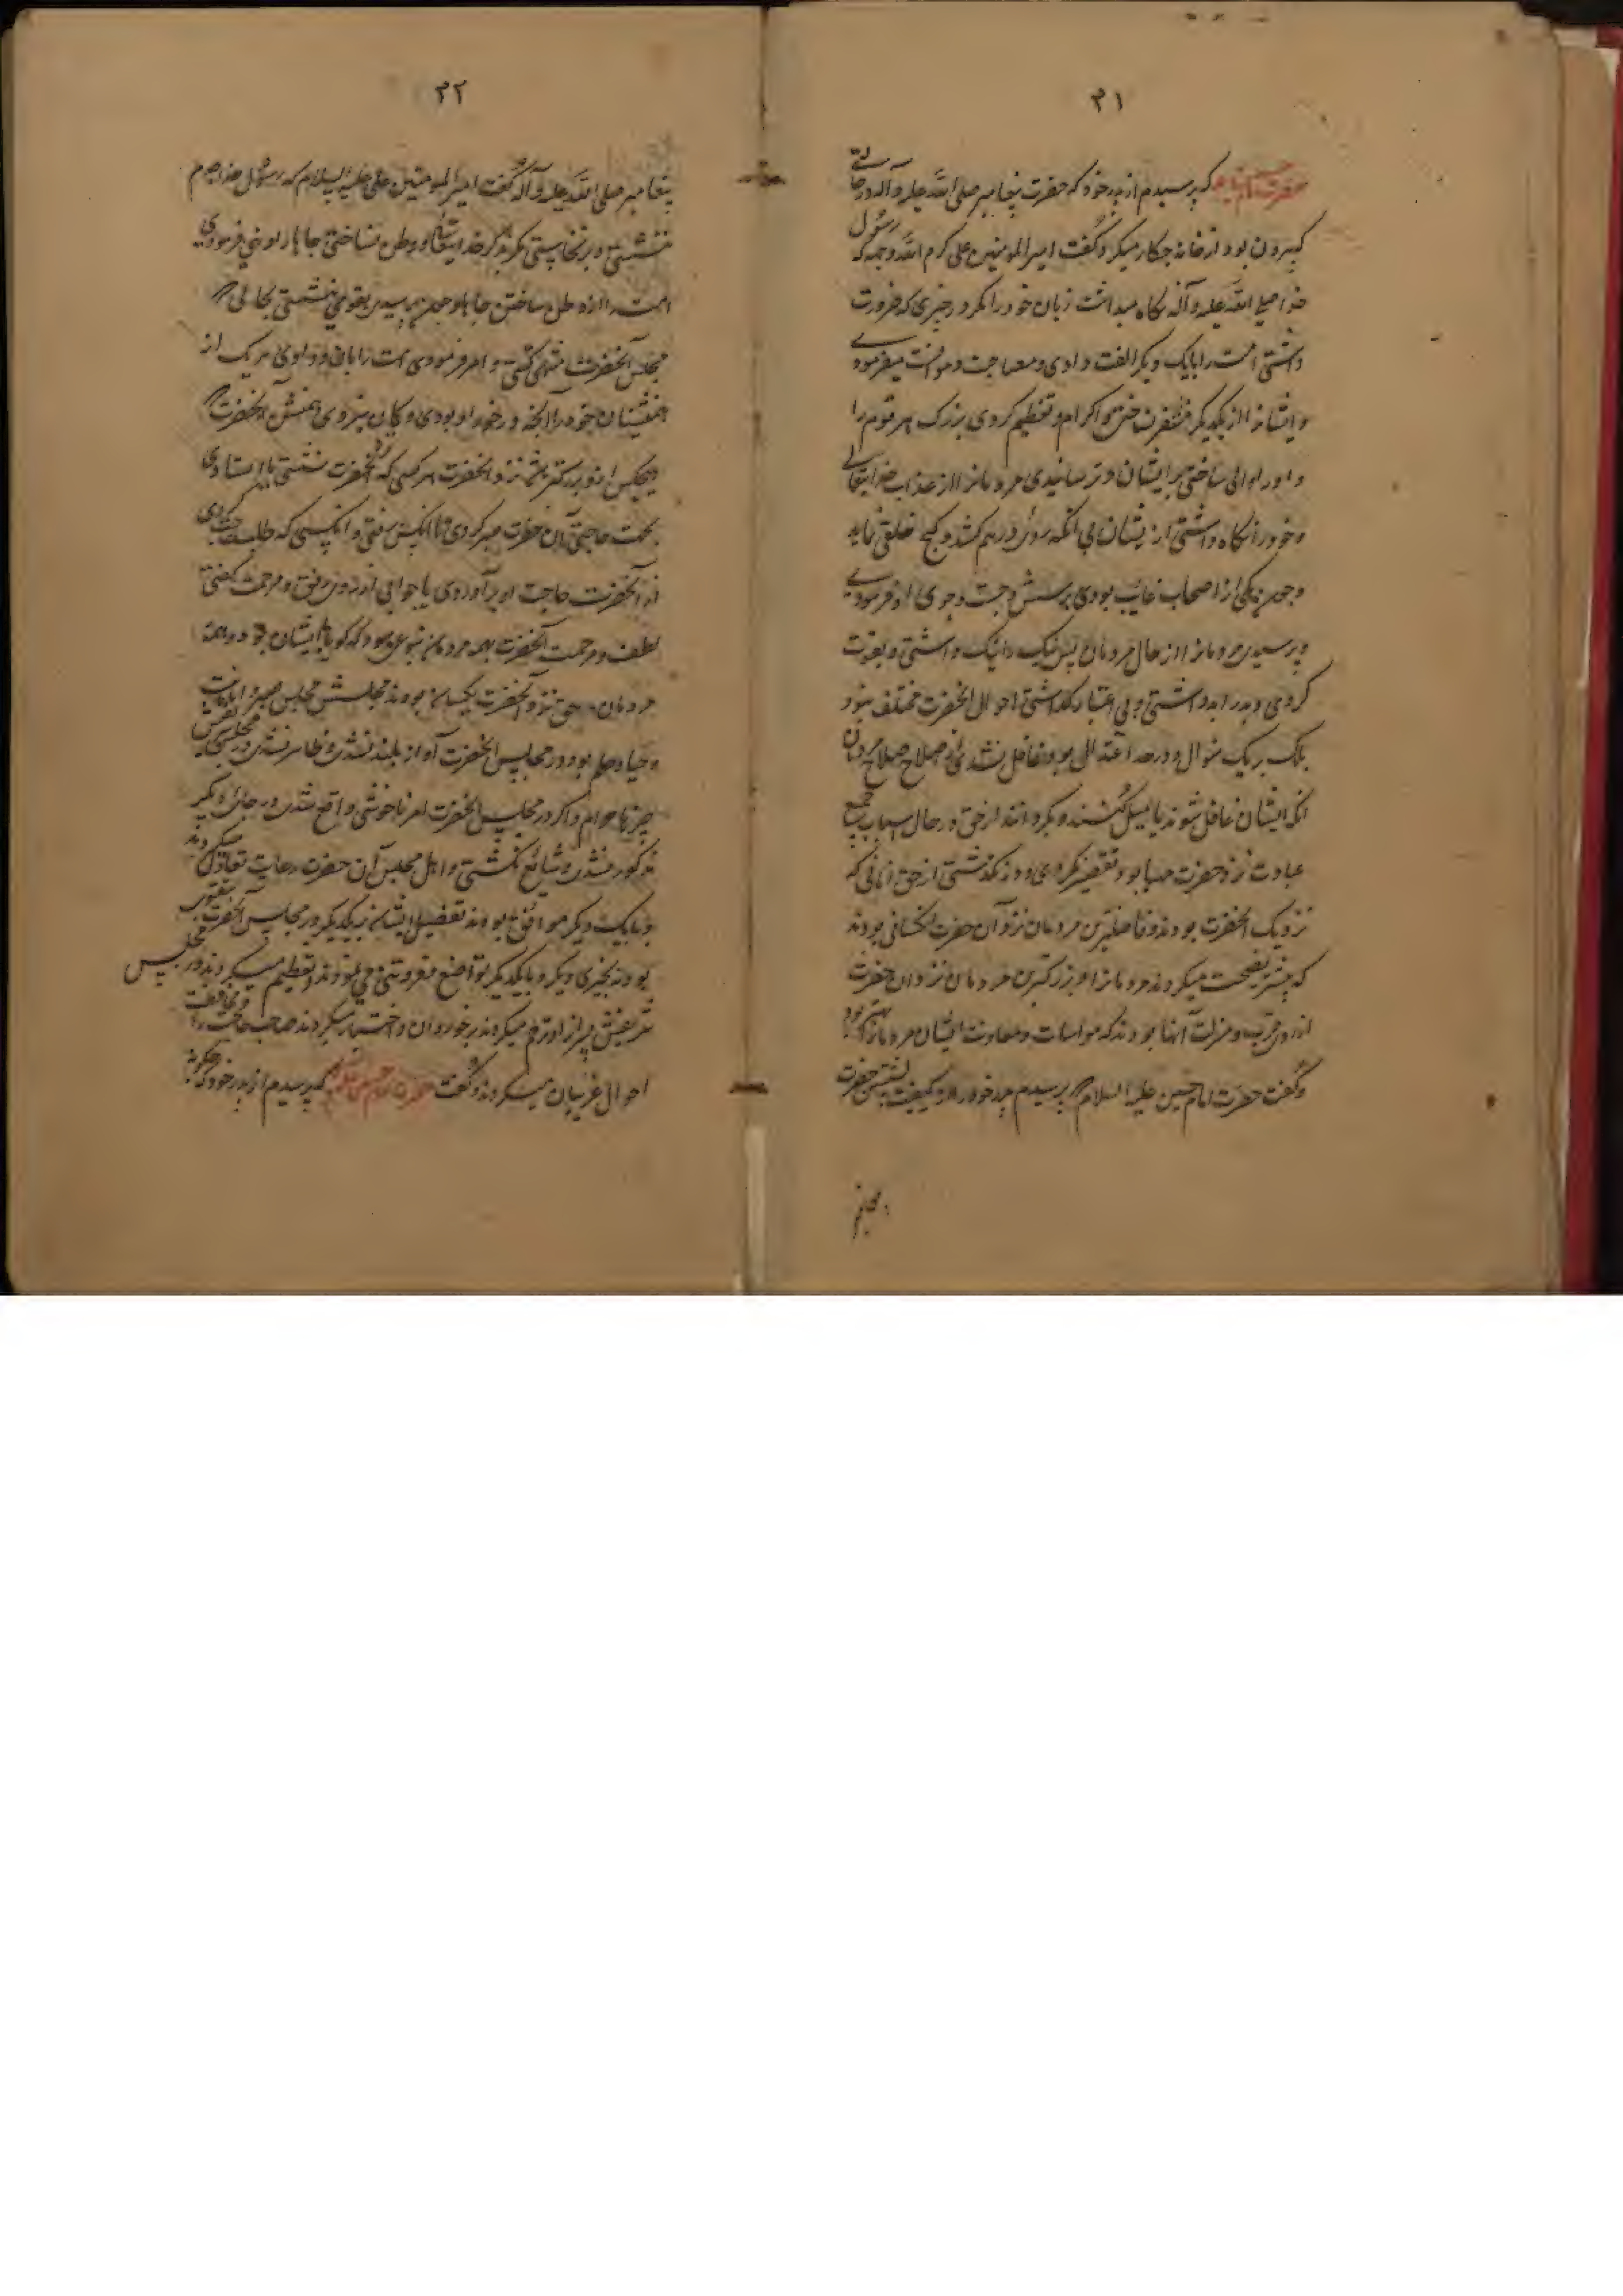 ۳۱
حضرت امام حسین که پرسیدم از پدر خود که حضرت پیغامبر صلی الله علیه و آله در حالتی
که بیرون بود از خانه چکار میکرد و گفت امیر المومنین علی کرم الله وجهه که رسول
خدا صلی الله علیه و آله نگاه میداشت زبان خود را مگر در چیزی که ضرورت
داشتی امت را با یک دیگر الفت دادی و مصاحبت و موانست میفرمودے
و ایشانرا از یکدیگر متنفر نساختی و اکرام و تعظیم کردی بزرگ هر قوم را
و او را والی ساختی بر ایشان و ترسانیدی مردمانرا از عذاب خدایتعالی
و خود را نگاه داشتی از ایشان بی آنکه روی درهم کشد و کج خلقی نماید
و چون یکی از اصحاب غایب بودی پرسش و جست و جوی او فرمودے
و پرسیدی مردمانرا از حال مردمان پس نیک را نیک داشتی و تقویت
کردی و بد را بد داشتی و بی اعتبار گذاشتی احوال آنحضرت مختلف نبود
بلکه بر یک منوال و در حد اعتدال بود و غافل نشدی از اصلاح مردمان
که ایشان غافل شوند یا میل کنند و بگردانند از حق در حال اسباب جمیع
عبادت نزد حضرت مهیا بود و تقصیر نکردی و در نگذشتی از حق آنانی که
نزدیک آنحضرت بودند و فاضلترین مردمان نزد آن حضرت کسانی بودند
که بیشتر نصیحت میکردند مردمانرا و بزرگترین مردمان نزد آن حضرت
از روی مرتبه و منزلت آنها بودند که مواسات و معاونت ایشان مردمانرا بهتر بود
و گفت حضرت امام حسین علیه السلام که پرسیدم پدر خود را از کیفیت نشستن حضرت
۳۲
پیغامبر صلی الله علیه و آله گفت امیر المومنین علی علیه السلام که رسول خدا صلعم
ننشستی و برنخاستی مگر بذکر خدایتعالی و وطن نساختی جاها را و نهی فرمودی
امت را از وطن ساختن جاها و چون برسیدی بقومی نشستی بجائی که
مجلس آنحضرت منتهی گشتی و امر فرمودی امت را بآن و دادی هر یک از
همنشینان خود را آنچه در خور او بودی و گمان نبردی همنشین آنحضرت که
هیچکس از و بزرگتر باشد نزد آنحضرت هر کسی که با آنحضرت نشستی یا ایستادی
بجهت حاجتی آن حضرت صبر کردی تا آنکس رفتی و آنکسی که طلب حاجت کردی
از آنحضرت حاجت او برآوردی یا جوابی از روی رفق و مرحمت گفتی
لطف و مرحمت آنحضرت بهمه مردمان بنوعی بود که گویا با ایشان بود و همه
مردمان در حق نزد آنحضرت یکسان بودند مجلسش مجلس صبر و امانت
و حیا و حلم بود و در مجلس آنحضرت آواز بلند نشدی و ظاهر نشدی در مجلسش
چیزها حرام و اگر در مجلس آنحضرت امر ناخوشی واقع شدی در جای دیگر
مذکور نشدی و شائع نگشتی و اهل مجلس آن حضرت رعایت تعادل میکردند
و با یک دیگر موافق بودند تفضیل ایشان بر یکدیگر در مجلس آنحضرت بتقوی
بود نه بچیزی دیگر و با یکدیگر تواضع و فروتنی می نمودند و تعظیم میکردند در مجلس
شریفش پیران را و ترحم میکردند بر خوردان و اختیار میکردند صاحب حاجت را و محافظت
احوال غریبان میکردند و گفت حضرت امام حسین علیه السلام که پرسیدم از پدر خود که چگونه